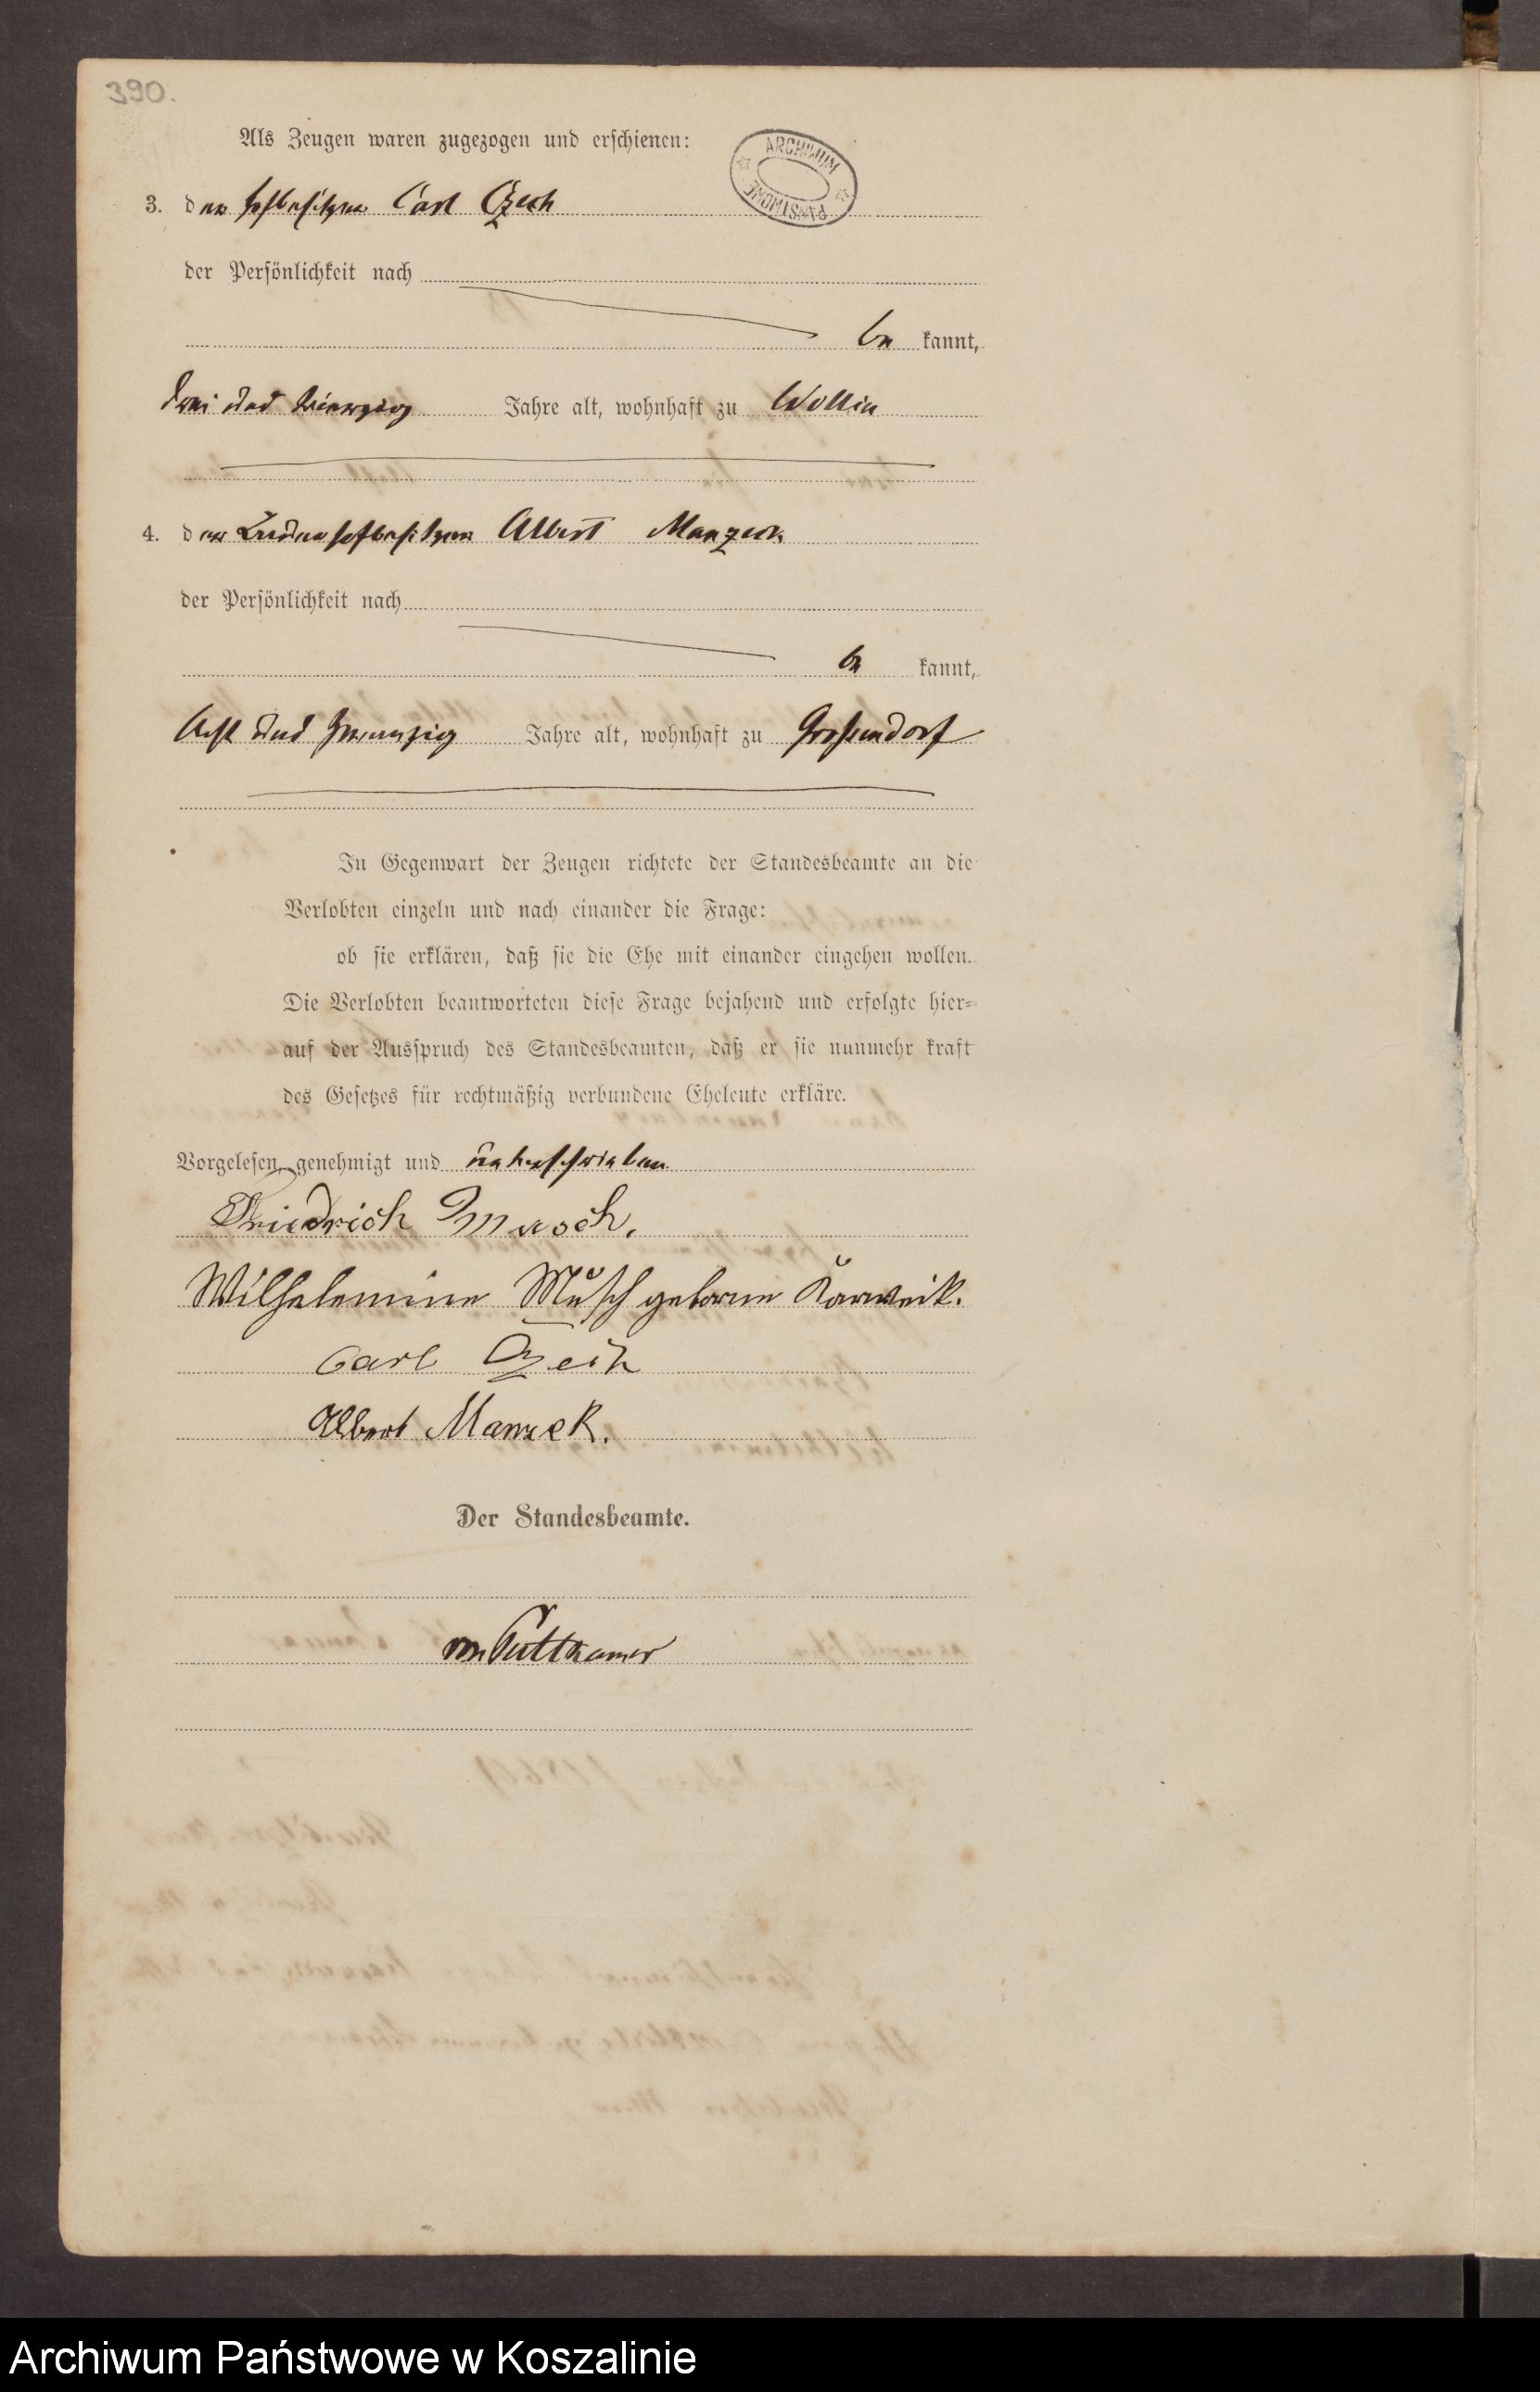 390.
Als Zeugen waren zugezogen und erschienen:
ARCHIWUM PAŃSTWOWE
3. der Hofbesitzer Carl Czech
der Persönlichkeit nach
be kannt,
drei und vierzig Jahre alt, wohnhaft zu Wollin
4. der Albert Manzeck
der Persönlichkeit nach
be kannt,
Acht und zwanzig Jahre alt, wohnhaft zu Großendorf
In Gegenwart der Zeugen richtete der Standesbeamte an die
Verlobten einzeln und nach einander die Frage:
ob sie erklären, daß sie die Ehe mit einander eingehen wollen.
Die Verlobten beantworteten diese Frage bejahend und erfolgte hier-
auf der Ausspruch des Standesbeamten, daß er sie nunmehr kraft
des Gesetzes für rechtmäßig verbundene Eheleute erkläre.
Vorgelesen, genehmigt und unterschrieben
Friedrich Musch.
Wilhelemine Musch geborne Karweik.
Carl Czech
Albert Manzek.
Der Standesbeamte.
von Puttkamer
Archiwum Państwowe w Koszalinie